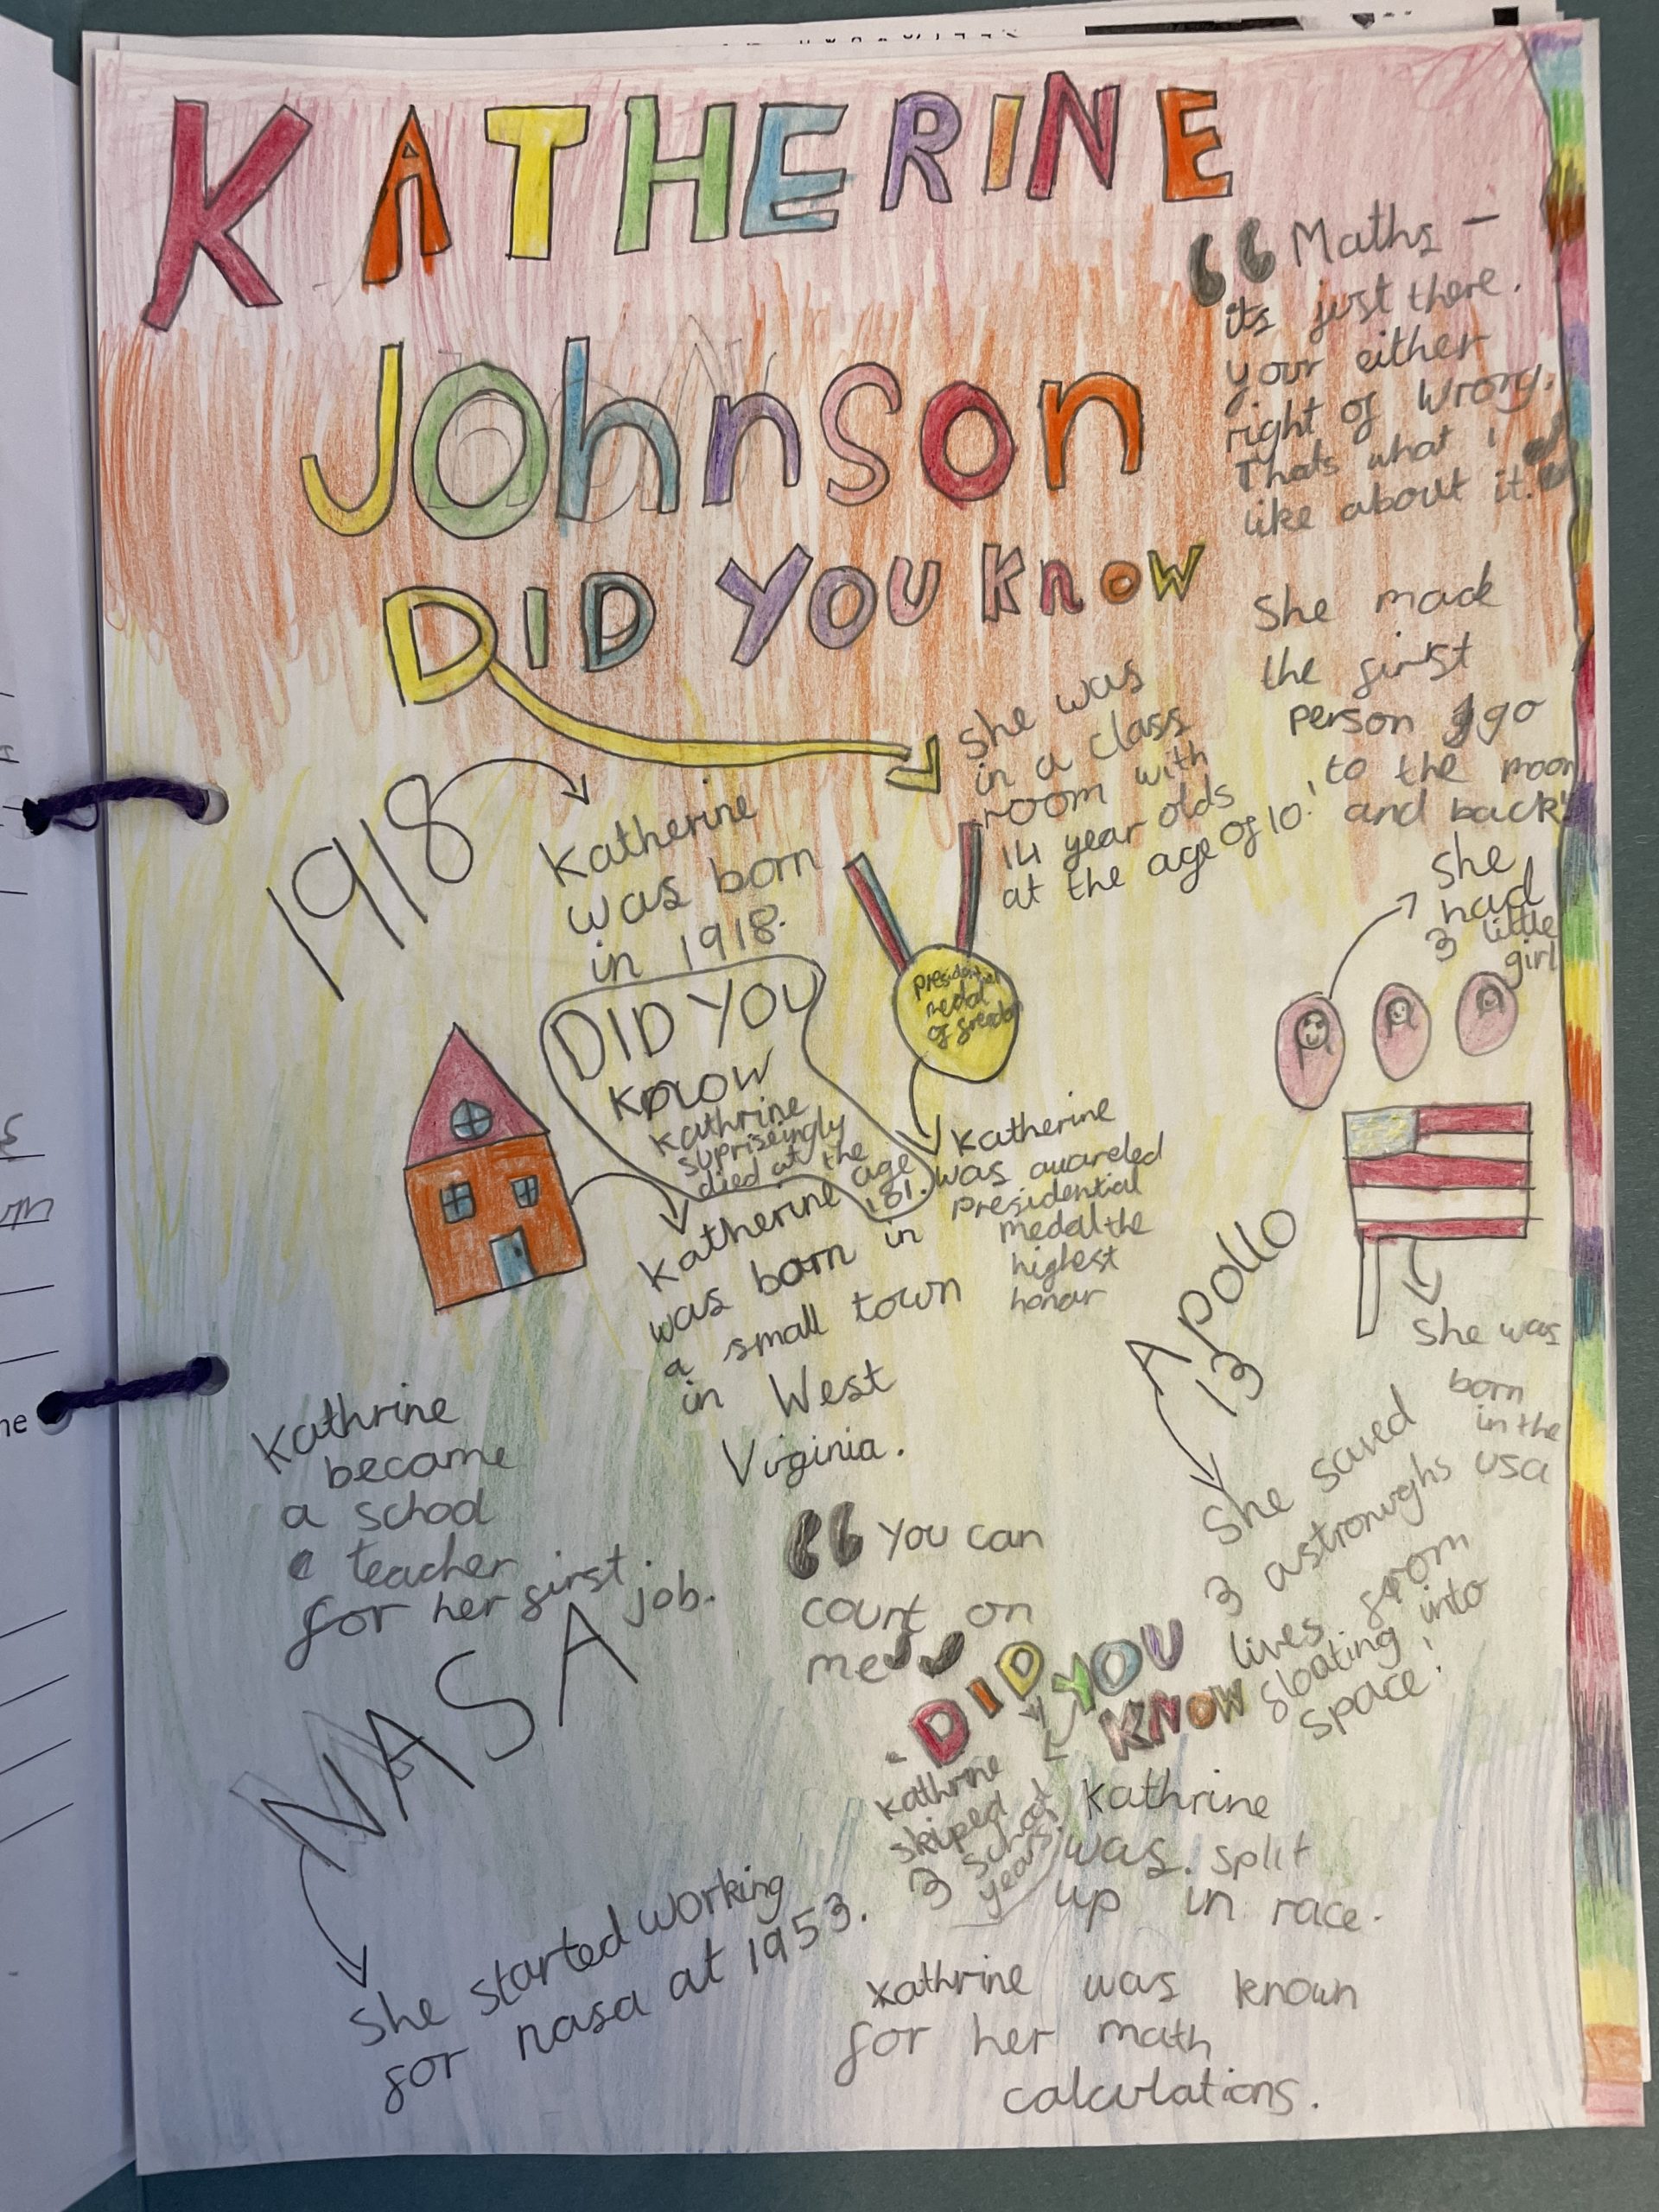 KATHERINE
Johnson
DID YOU KNOW
Maths –
its just there.
your either
right of wrong.
Thats what i
like about it.
She made
the first
person go
to the moon
and back!
she was
in a class
room with
14 year olds
at the age of 10!
1918
Katherine
was born
in 1918.
She
had
3 little
girl
presidential
medal
of freedom
DID YOU
KNOW
Kathrine
supriseingly
died at the
age
101.
Katherine
was awareded
presidential
medal the
highest
honar
Katherine
was born in
a small town
in West
Virginia.
She was
born
in the
usa
Apollo
13
She saved
3 astronughs
lives from
floating into
space!
Kathrine
became
a school
teacher
for her first
job.
"You can
count on
me"
NASA
She started working
for nasa at 1953.
DID YOU
KNOW
Kathrine
skiped
3 school
years
Kathrine
was split
up in race.
Kathrine was known
for her math
calculations.